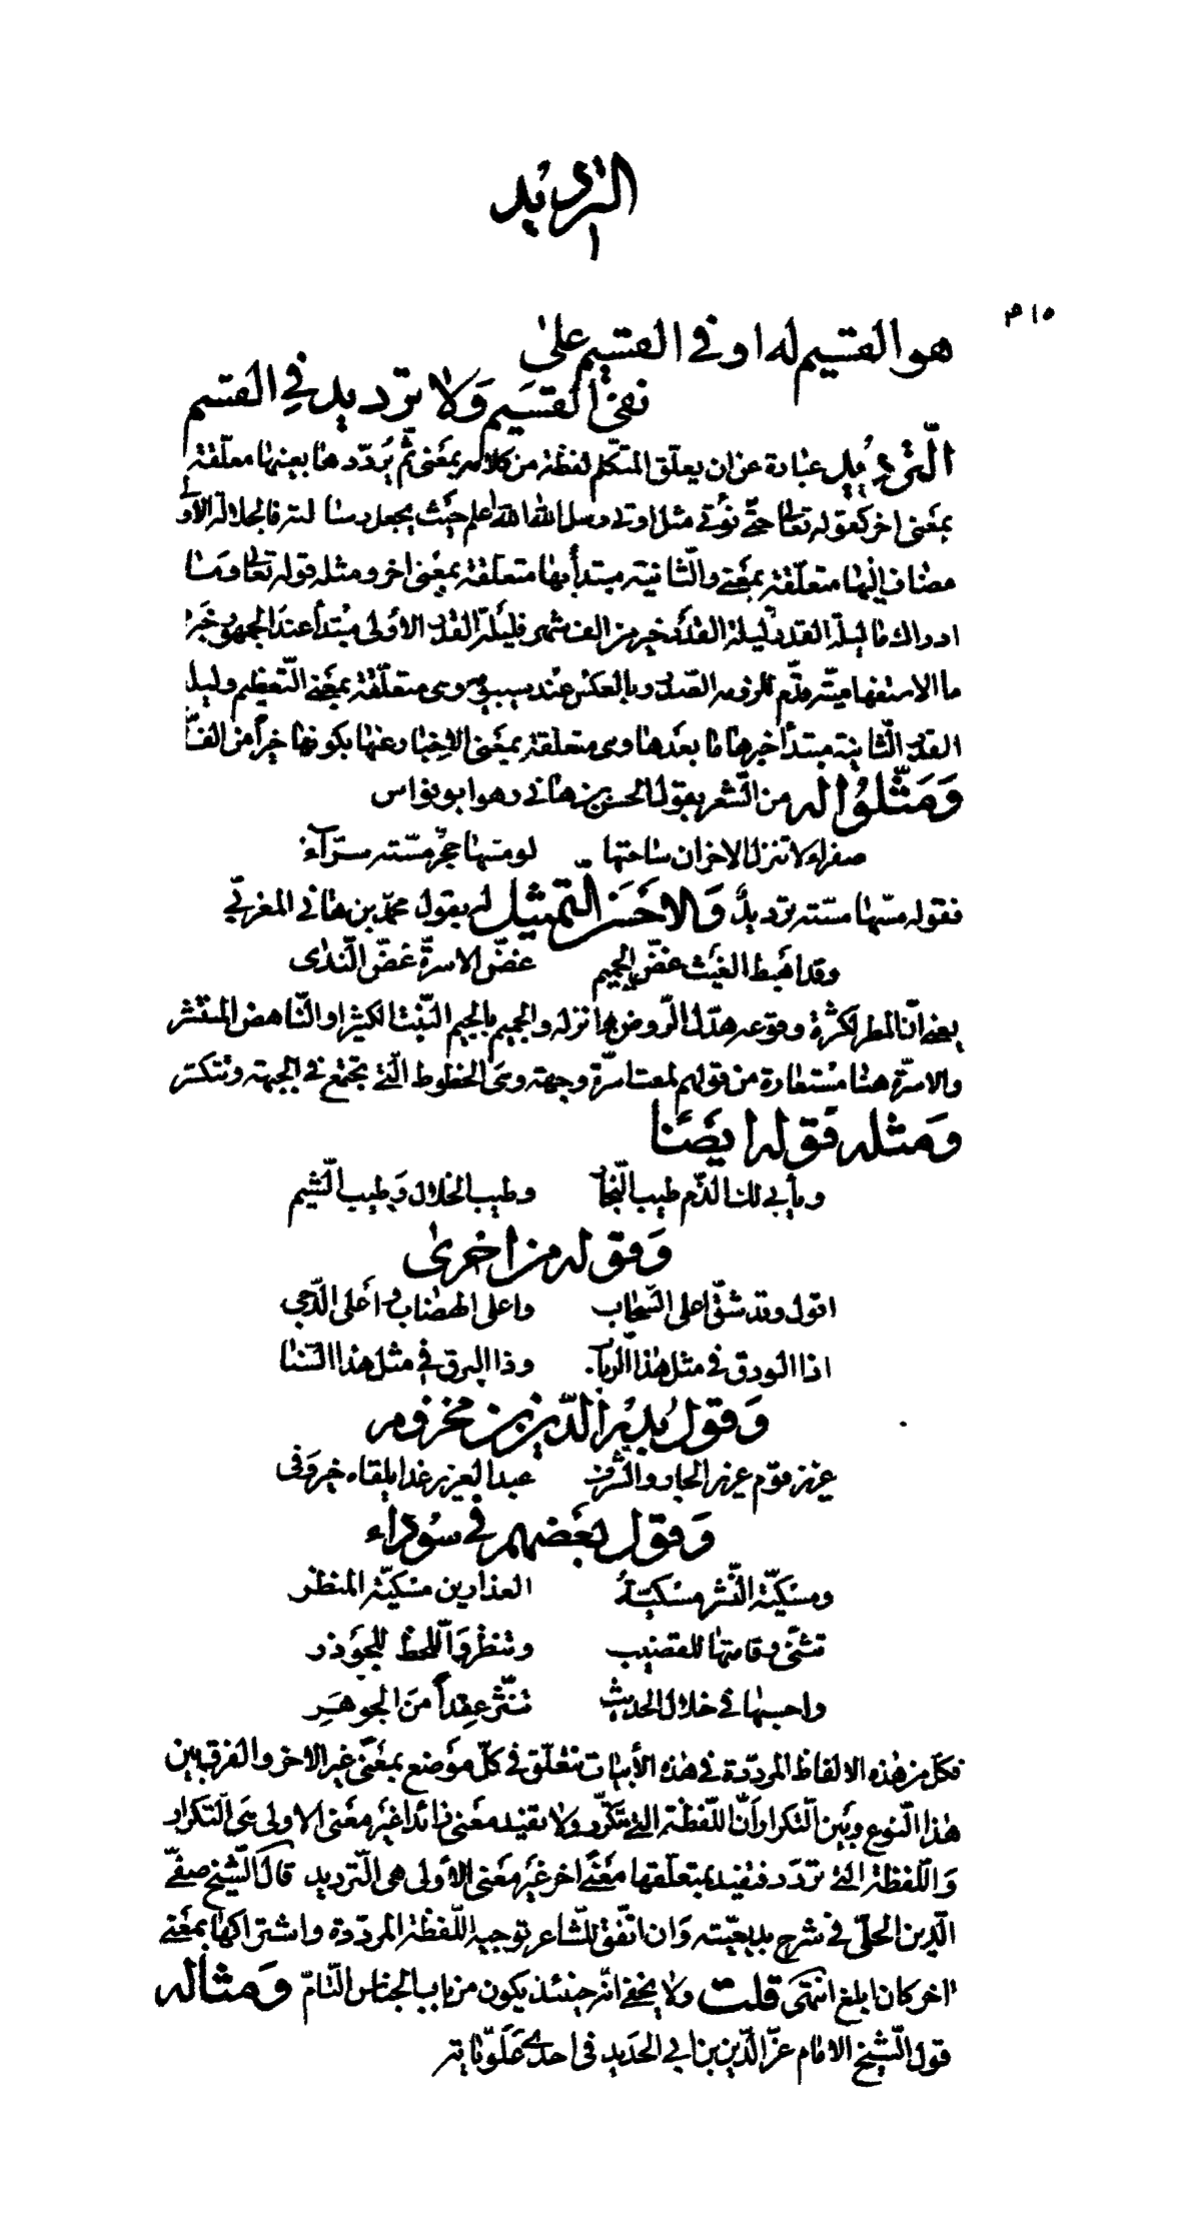 الترديد
١
٣١٥
هو القسيم له اوفى القسيم على
نفى القسيم ولا ترديد في القسم
الترديد عبارة عن ان يعلق المتكلم لفظة من كلامه بمعنى ثم يرددها بعينها معلقة
بمعنى اخر كقوله تعالى حتى نؤتى مثل اوتى رسل الله الله اعلم حيث يجعل رسالته فالجلالة الاولى
مضاف اليها متعلقة بمعنى والثانية مبتدأ بها متعلقة بمعنى اخر ومثله قوله تعالى وما
ادراك ما ليلة القدر ليلة القدر خير من الف شهر فليلة القدر الاولى مبتدأ عند الجمهور خبره
ما الاستفهامية قدم للزومه الصدر وبالعكس عند سيبويه وهى متعلقة بمعنى التعظيم وليلة
القدر الثانية مبتدأ خبرها ما بعدها وهى متعلقة بمعنى الاخبار عنها بكونها خيراً من الف
ومثلوا له من الشعر بقول الحسن بن هانى وهو ابو نواس
صفراء لا تنزل الاحزان ساحتها لو مسها حجر مسته سراء
فقوله مسها مسته ترديد والاحسن التمثيل له بقول محمد بن هانى المغربي
وقد اهبط الغيث غض الجميم غض الاسرة غض الندى
يعنى ان المطر لكثرة وقوعه هذا الروض ما نزله والجميم بالجيم النبت الكثير او الناهض المنتشر
والاسرة هنا مستعارة من قولهم لمعت اسرة وجهه وهى الخطوط التى تجتمع فى الجبهة وتتكسر
ومثله قوله ايضا
ويأبى لك الذم طيب النجار وطيب الخلال وطيب الشيم
وقوله من اخرى
اقول وقد شق اعلى السحاب واعلى الهضاب واعلى الدجى
اذا الودق فى مثل هذا الرباب وذا البرق فى مثل هذا السنا
وقول بدر الدين بن مخزوم
عزيز قوم عزيز الجار والشرف عبد العزيز غدا يلقاه خير وفى
وقول بعضهم فى سوداء
ومسكية النشر مسكية العذارين مسكية المنظر
تثنى وقامتها للقضيب وتنظر واللحظ للجؤذر
واحسبها فى خلال الحديث تنثر عقداً من الجوهر
فكل من هذه الالفاظ المرددة فى هذه الأبيات متعلق فى كل موضع بمعنى غير الاخر والفرق بين
هذا النوع وبين التكرار ان اللفظة التى تتكرر ولا تفيد معنى زائدا غير معنى الاولى هى التكرار
واللفظة التى تردد فتفيد بمتعلقها معنى اخر غير معنى الأولى هى الترديد قال الشيخ صفى
الدين الحلى فى شرح بديعيته وان اتفق للشاعر توجيه اللفظة المرددة واشتراكها بمعنى
اخر كان ابلغ انتهى قلت ولا يخفى انه حينئذ يكون من باب الجناس التام ومثاله
قول الشيخ الامام عز الدين بن ابى الحديد فى احدى علوياته